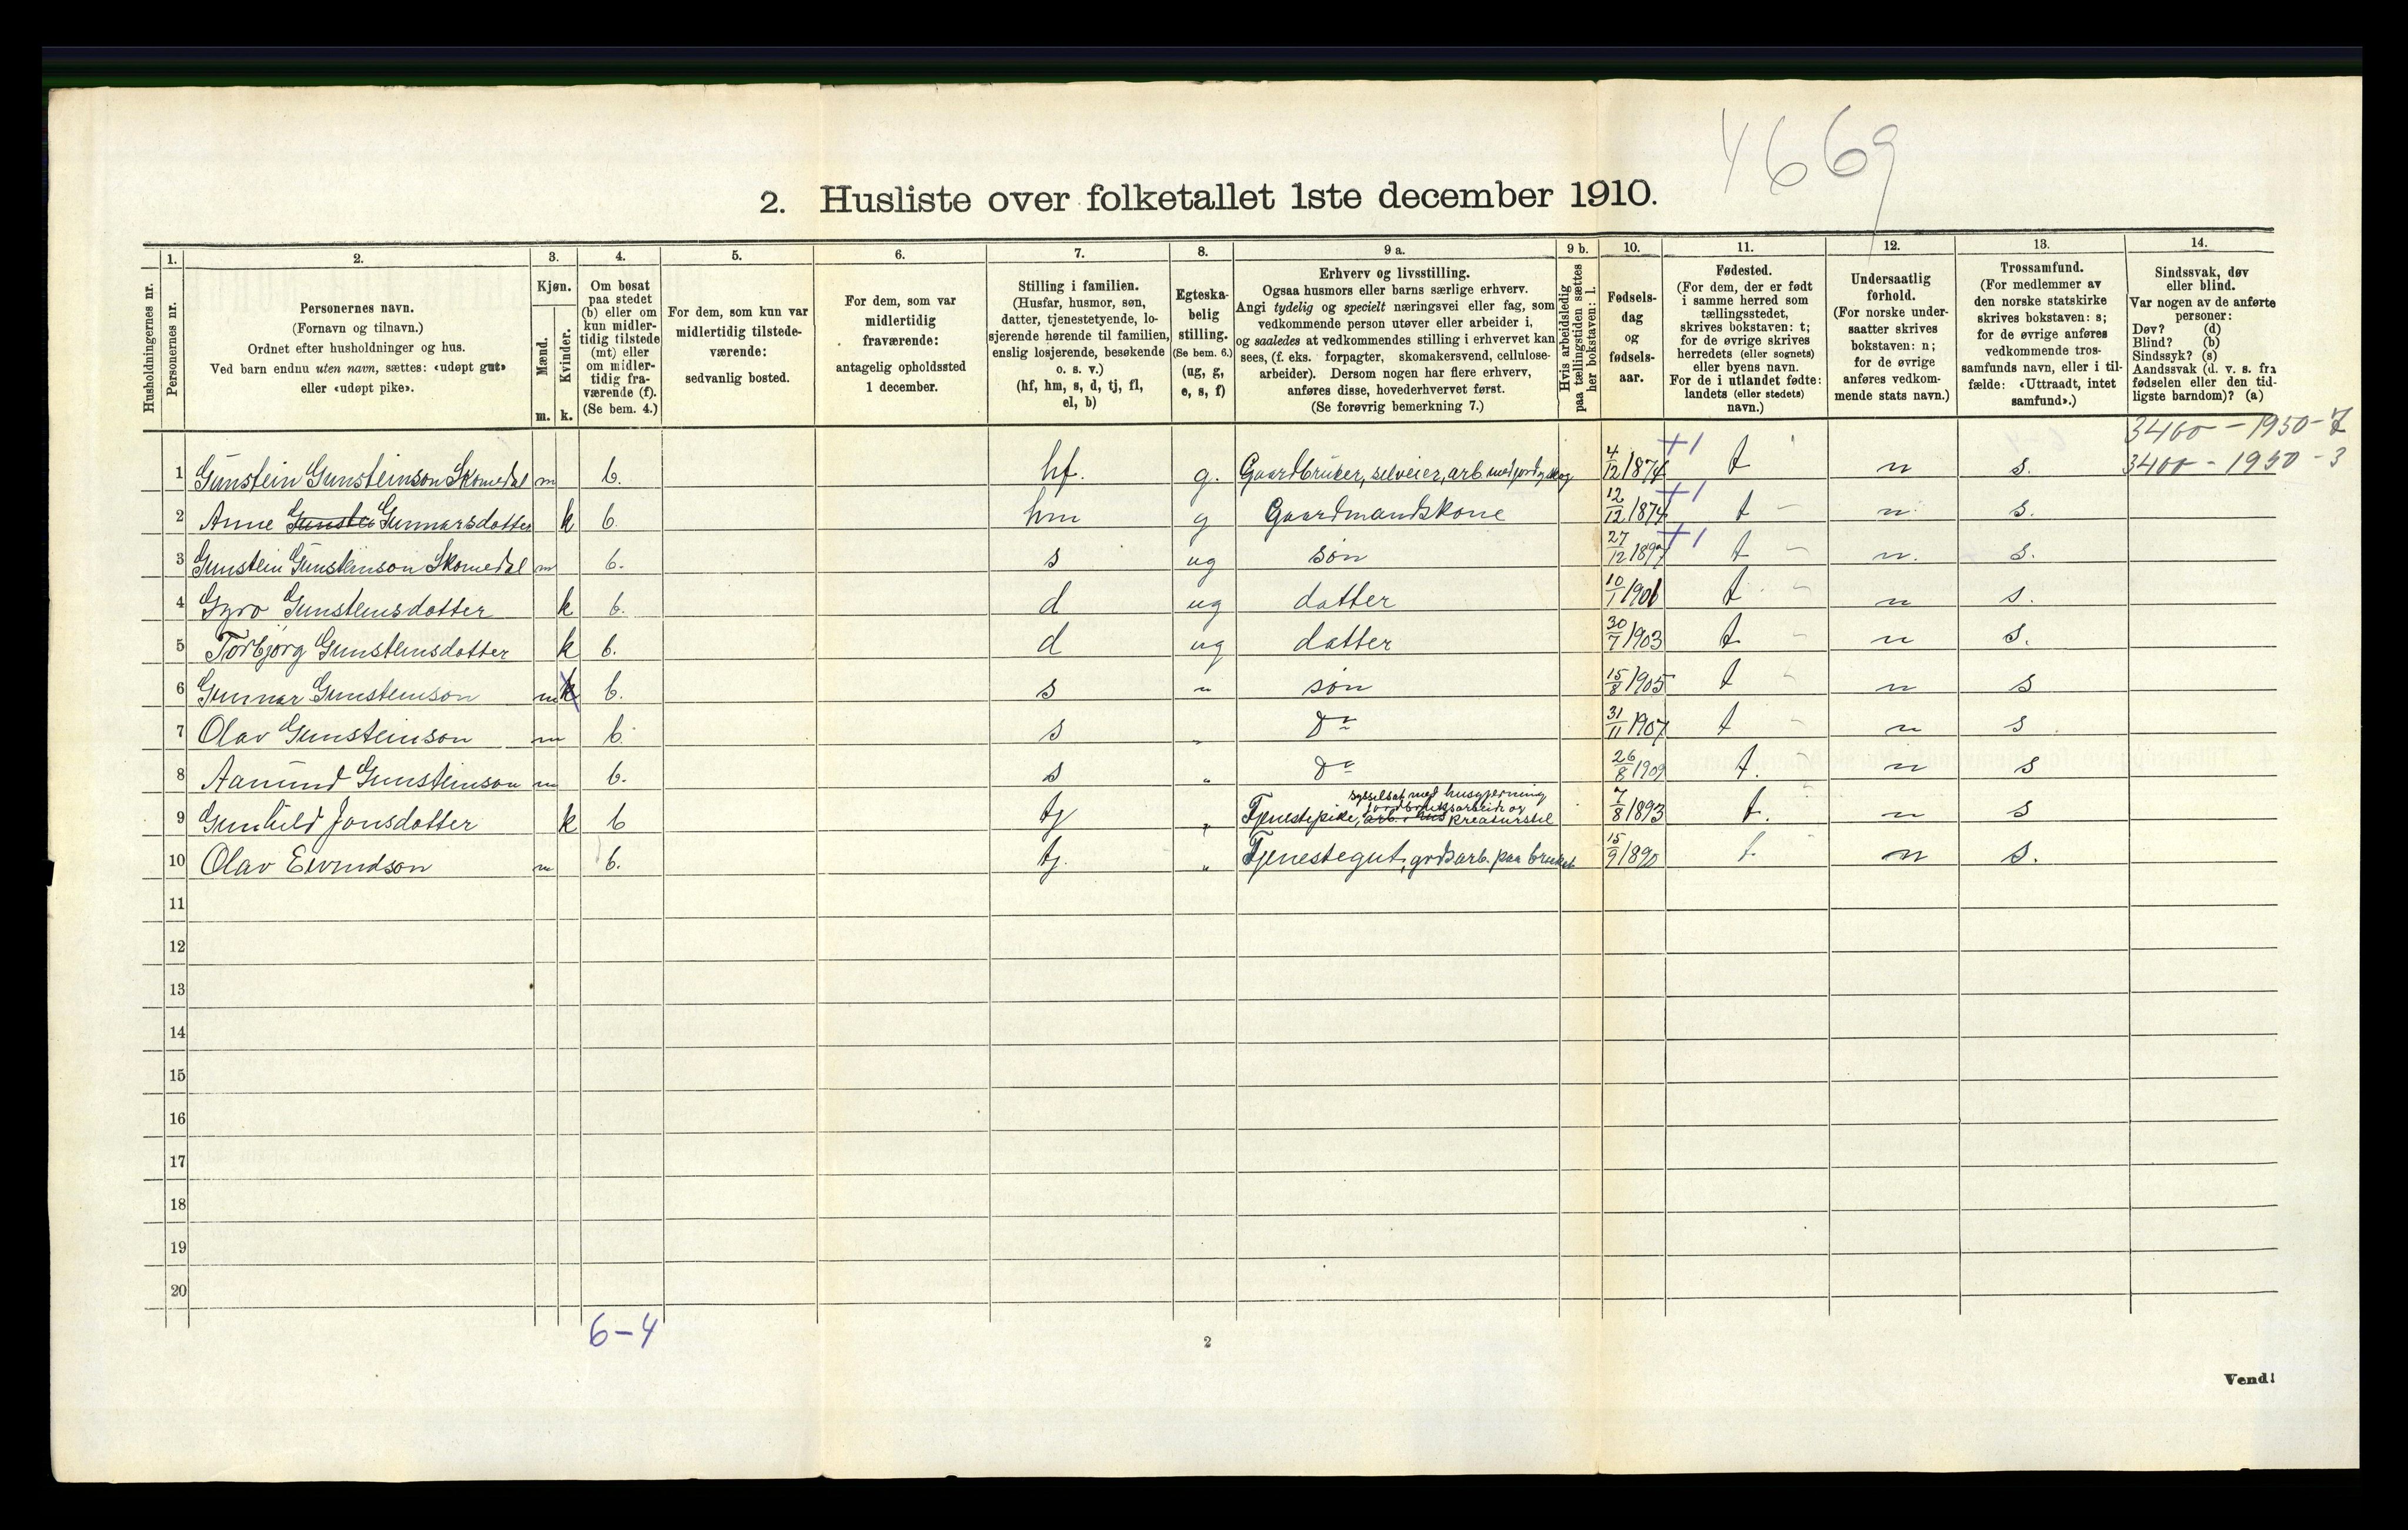 4669
2. Husliste over folketallet 1ste december 1910.
Husholdningernes nr.
1. Personernes nr.
2. Personernes navn. (Fornavn og tilnavn.) Ordnet efter husholdninger og hus. Ved barn endnu uten navn, sættes: «udøpt gut» eller «udøpt pike».
3. Kjøn. Mænd. m. Kvinder. k.
4. Om bosat paa stedet (b) eller om kun midlertidig tilstede (mt) eller om midlertidig fraværende (f). (Se bem. 4.)
5. For dem, som kun var midlertidig tilstedeværende: sedvanlig bosted.
6. For dem, som var midlertidig fraværende: antagelig opholdssted 1 december.
7. Stilling i familien. (Husfar, husmor, søn, datter, tjenestetyende, losjerende hørende til familien, enslig losjerende, besøkende o. s. v.) (hf, hm, s, d, tj, fl, el, b)
8. Egteskabelig stilling. (Se bem. 6.) (ug, g, e, s, f)
9 a. Erhverv og livsstilling. Ogsaa husmors eller barns særlige erhverv. Angi tydelig og specielt næringsvei eller fag, som vedkommende person utøver eller arbeider i, og saaledes at vedkommendes stilling i erhvervet kan sees, (f. eks. forpagter, skomakersvend, cellulosearbeider). Dersom nogen har flere erhverv, anføres disse, hovederhvervet først. (Se forøvrig bemerkning 7.)
9 b. Hvis arbeidsledig paa tællingstiden sættes her bokstaven: l.
10. Fødselsdag og fødselsaar.
11. Fødested. (For dem, der er født i samme herred som tællingsstedet, skrives bokstaven: t; for de øvrige skrives herredets (eller sognets) eller byens navn. For de i utlandet fødte: landets (eller stedets) navn.)
12. Undersaatlig forhold. (For norske undersaatter skrives bokstaven: n; for de øvrige anføres vedkommende stats navn.)
13. Trossamfund. (For medlemmer av den norske statskirke skrives bokstaven: s; for de øvrige anføres vedkommende trossamfunds navn, eller i tilfælde: «Uttraadt, intet samfund».)
14. Sindssvak, døv eller blind. Var nogen av de anførte personer: Døv? (d) Blind? (b) Sindssyk? (s) Aandssvak (d. v. s. fra fødselen eller den tidligste barndom)? (a)
3400 - 1950 - 7
1 Gunstein Gunsteinson Skomedal m b. hf. g. Gaardbruker, selveier, arb. med jord og skog 4/12 1874 +1 t n s. 3400 - 1950 - 3
2 Anne Gunnarsdotter k b. hm g Gaardmandskone 12/12 1874 +1 t n s.
3 Gunstein Gunsteinson Skomedal m b. s ug søn 27/12 1897 +1 t n. s.
4 Gyro Gunsteinsdotter k b. d ug datter 10/1 1901 t n s.
5 Torbjørg Gunsteinsdotter k b. d ug datter 30/7 1903 t n s.
6 Gunnar Gunsteinson m k b. s " søn 15/8 1905 t n s
7 Olav Gunsteinson m b. s " Do 31/11 1907 t n s
8 Aanund Gunsteinson m b. s " Do 26/8 1909 t. n s
9 Gunhild Jonsdotter k b tj " Tjenestepike, arb. i hus sysselsat med husgjerning jordbruksarbeide og kreaturstel 7/8 1893 t. n s
10 Olav Eivindson m b. tj. " Tjenestegut, gårdsarb. paa bruket 15/9 1890 t n s.
11
12
13
14
15
16
17
18
19
20
6-4
2
Vend!